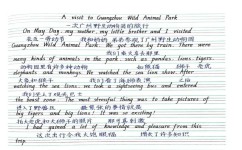 A visit to Guangzhou Wild Animal Park
一次广州野生动物园的旅行
On May Day, my mother, my little brother and I visited
在五一劳动节 我和妈妈、弟弟参观了广州野生动物园
Guangzhou Wild Animal Park. We got there by train. There were
我们坐火车去那里
many kinds of animals in the park, such as pandas, lions, tigers,
动物园里有许多种动物 如熊猫 狮子 老虎
elephants and monkeys. We watched the sea lion show. After
大象和猴子 我们看了海狮表演
watching the sea lions, we took a sightseeing bus and entered
the beast zone. The most exciting thing was to take pictures of
by tigers and big lions! It was so exciting!
I had gained a lot of knowledge and pleasure from this
这次出行令我大饱眼福 增长了许多知识
trip.